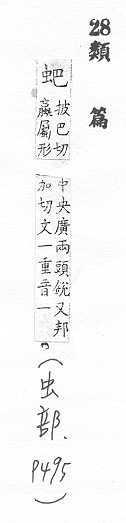 28
類 篇
蚆
披巴切
蠃屬形
中央廣兩頭銳又邦
加切文一重音一。
(虫部. P495)